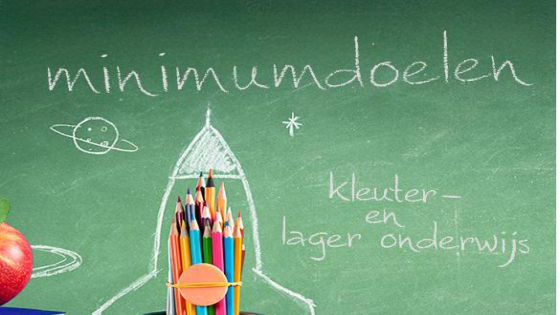 minimumdoelen
kleuter-
en
lager onderwijs